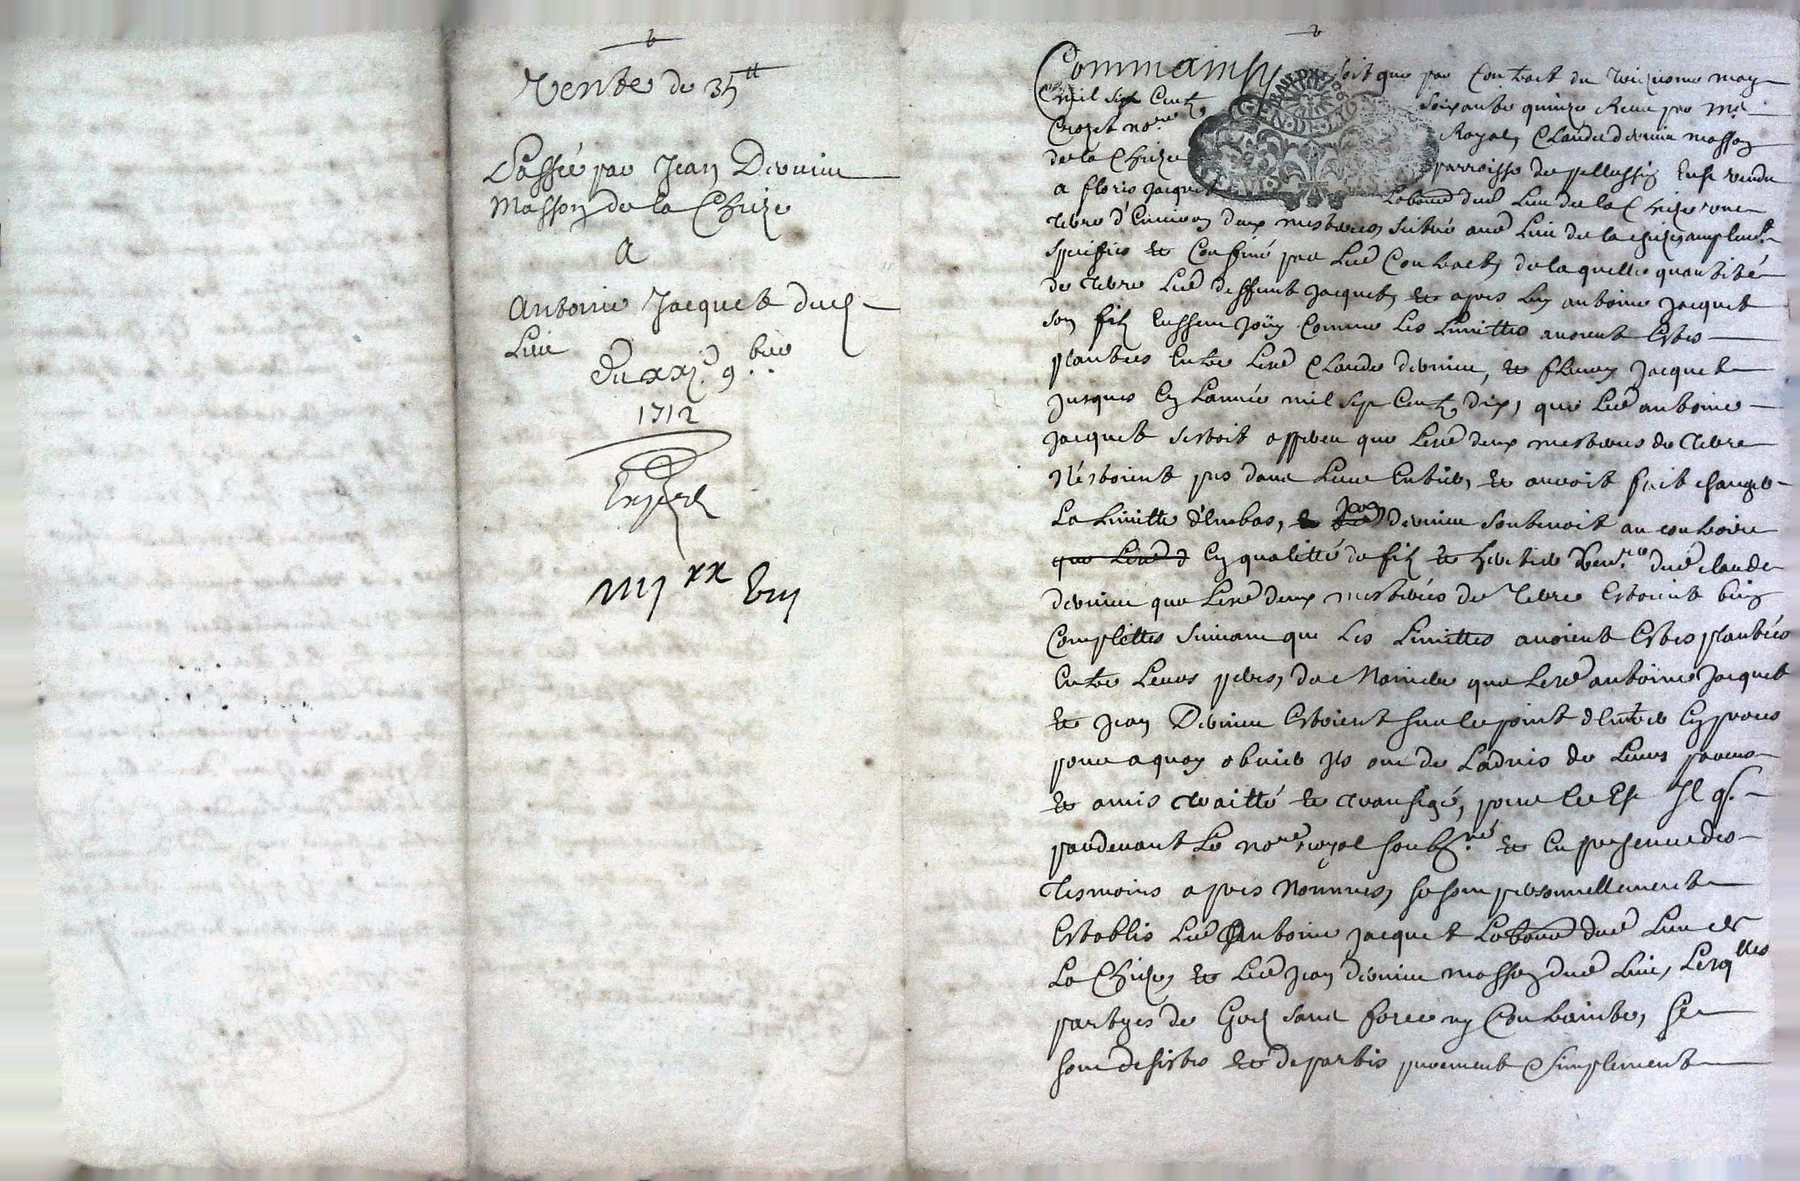 Vente de 35ᵗᵗ
Passé par Jean Dervieu
Masson de la Chieze
A
Antoine Jacquet dud
Lieu
Du xxj 9bre
1712
Expedᵉ
iiijˣˣ viij
Comme ainsy soit que par Contract du may
mil sept Cent soixante quinze Receu par Mᵉ
Crozet noʳᵉ Royal, Claude dervieu masson
de la Chieze parroisse de pellussin Eust vendu
a floris Jacquet Laboureʳ dud Lieu de la Chieze une
terre d'Environ deux mesterées scitué aud Lieu de la chieze amplemᵗ
speciffiée et Confiné par Led Contract, de laquelle quantité
de terre Led deffunt Jacquet, et apres luy antoine Jacquet
son fils Eussent Joüy Comme Les Limittes avoient Estes
plantées Entre Lesd Claude dervieu, et fleury Jacquet
Jusques En Lannée mil sept Cent dix, que Led antoine
Jacquet s'estoit apperceu que Lesd deux mesterées de terre
N'estoient pas dans Leur Entier, et auroit fait changer
La Limitte d'Embas, et Jean dervieu soutenoit au contraire
que Lesd En qualitté de fils et heritier dud claude
dervieu que Lesd deux mesterées de terre Estoient bien
Complettes suivant que Les Limittes avoient Estes plantées
Entre Leurs peres, de Maniere que Lesd antoine Jacquet
et Jean Dervieu Estoient sur le point d'Entrer En proces
pour a quoy obvier Ils ont de L'advis de Leurs parens
et amis traitté et transigé, pour Ce Est Il q.
pardevant Le noʳᵉ royal soubzⁿᵉ et En presence des
tesmoins apres Nommes, se sont personnellement
Establis Led Antoine Jacquet Laboureʳ dud Lieu de
La Chieze, et Led Jean dervieu masson dud Lieu, Lesqˡˡᵉˢ
partyes de Gred sans force ny Contrainte, se
sont desistes et departis purement et simplement